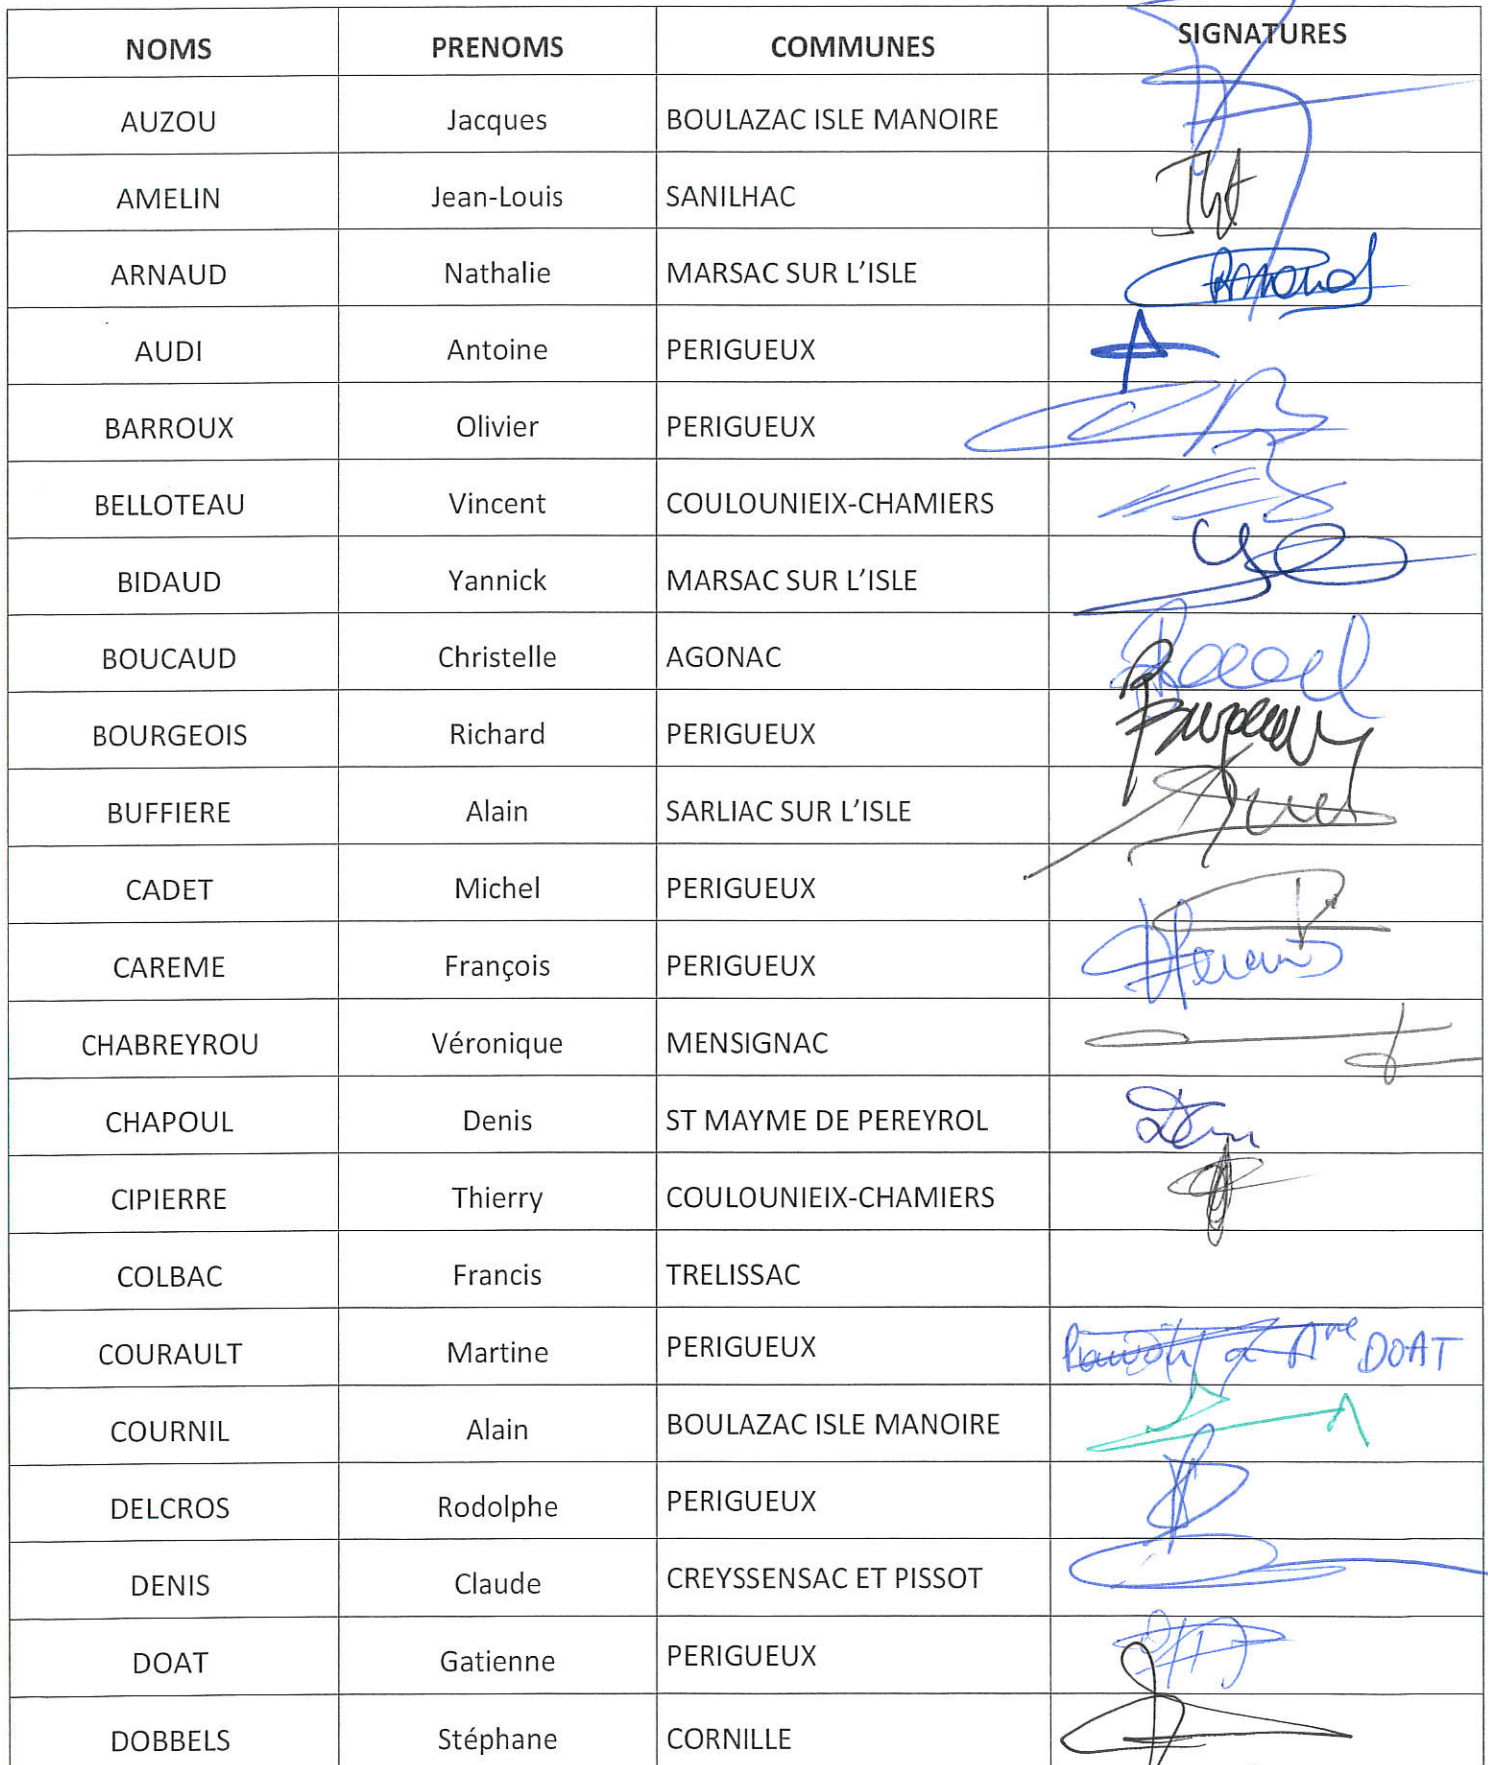 NOMS PRENOMS COMMUNES SIGNATURES
AUZOU Jacques BOULAZAC ISLE MANOIRE
AMELIN Jean-Louis SANILHAC
ARNAUD Nathalie MARSAC SUR L'ISLE
AUDI Antoine PERIGUEUX
BARROUX Olivier PERIGUEUX
BELLOTEAU Vincent COULOUNIEIX-CHAMIERS
BIDAUD Yannick MARSAC SUR L'ISLE
BOUCAUD Christelle AGONAC
BOURGEOIS Richard PERIGUEUX
BUFFIERE Alain SARLIAC SUR L'ISLE
CADET Michel PERIGUEUX
CAREME François PERIGUEUX
CHABREYROU Véronique MENSIGNAC
CHAPOUL Denis ST MAYME DE PEREYROL
CIPIERRE Thierry COULOUNIEIX-CHAMIERS
COLBAC Francis TRELISSAC
COURAULT Martine PERIGUEUX DOAT
COURNIL Alain BOULAZAC ISLE MANOIRE
DELCROS Rodolphe PERIGUEUX
DENIS Claude CREYSSENSAC ET PISSOT
DOAT Gatienne PERIGUEUX
DOBBELS Stéphane CORNILLE